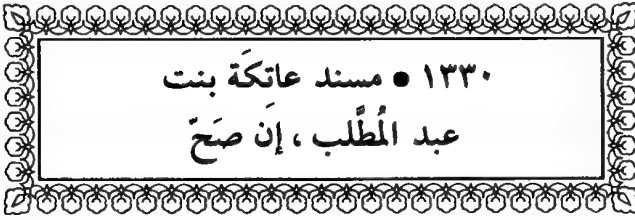 ١٣٣٠ • مسند عاتكَة بنت
عبد المُطَّلب ، إِن صَحّ